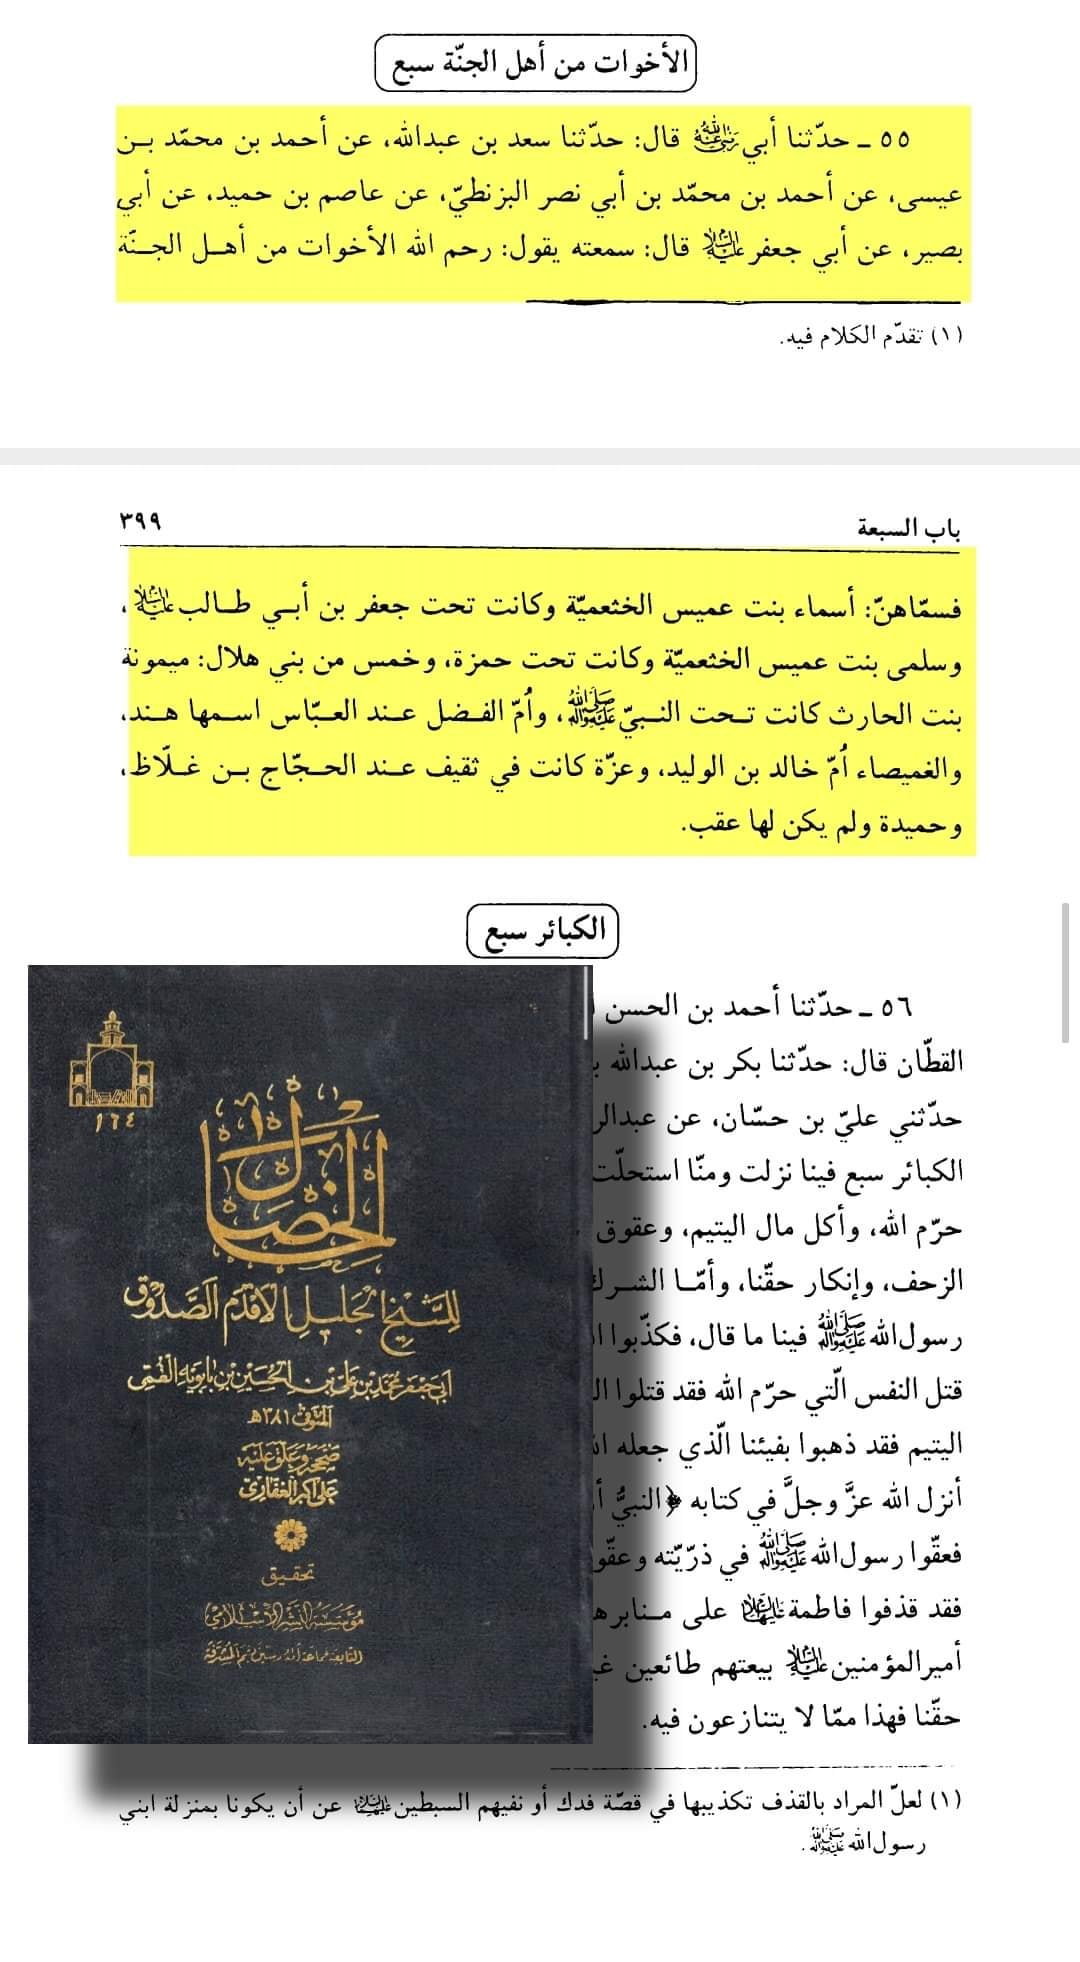 الأخوات من أهل الجنّة سبع
٥٥ ـ حدّثنا أبي رضي الله عنه قال: حدّثنا سعد بن عبدالله، عن أحمد بن محمّد بـن
عيسى، عن أحمد بن محمّد بن أبي نصر البزنطيّ، عن عاصم بن حميد، عن أبي
بصير، عن أبي جعفر عليه السلام قال: سمعته يقول: رحم الله الأخوات من أهـل الجـنّة
(١) تقدّم الكلام فيه.
باب السبعة ٣٩٩
فسمّاهنّ: أسماء بنت عميس الخثعميّة وكانت تحت جعفر بن أبـي طـالب عليه السلام،
وسلمى بنت عميس الخثعميّة وكانت تحت حمزة، وخمس من بني هلال: ميمونة
بنت الحارث كانت تـحت النـبيّ صلى الله عليه وآله، وأُمّ الفـضل عـند العـبّاس اسـمها هـند،
والغميصاء أُمّ خالد بن الوليد، وعزّة كانت في ثقيف عـند الحـجّاج بـن غـلّاظ،
وحميدة ولم يكن لها عقب.
الكبائر سبع
٥٦ ـ حدّثنا أحمد بن الحسن
القطّان قال: حدّثنا بكر بن عبدالله
حدّثني عليّ بن حسّان، عن
الكبائر سبع فينا نزلت ومنّا استحلّت
حرّم الله، وأكل مال اليتيم، وعقوق
الزحف، وإنكار حقّنا، وأمّـا الشـرك
رسول الله صلى الله عليه وآله فينا ما قال، فكذّبوا
قتل النفس الّتي حرّم الله فقد قتلوا
اليتيم فقد ذهبوا بفيئنا الّذي جعله
أنزل الله عزَّ وجلَّ في كتابه ﴿النبيُّ
فعقّوا رسول الله صلى الله عليه وآله في ذرّيّته
فقد قذفوا فاطمة عليها السلام على
أمير المؤمنين عليه السلام بيعتهم طائعين
حقّنا فهذا ممّا لا يتنازعون فيه.
(١) لعلّ المراد بالقذف تكذيبها في قصّة فدك أو نفيهم السبطين عليهما السلام عن أن يكونا بمنزلة ابني
رسول الله صلى الله عليه وآله.
١٦٤
الخصال
للشيخ الجليل الأقدم الصدوق
أبي جعفر محمد بن علي بن الحسين بن بابويه القمي
المتوفى ٣٨١هـ
صححه وعلق عليه
علي أكبر الغفاري
تحقيق
مؤسسة النشر الإسلامي
التابعة لجماعة المدرسين بقم المشرفة